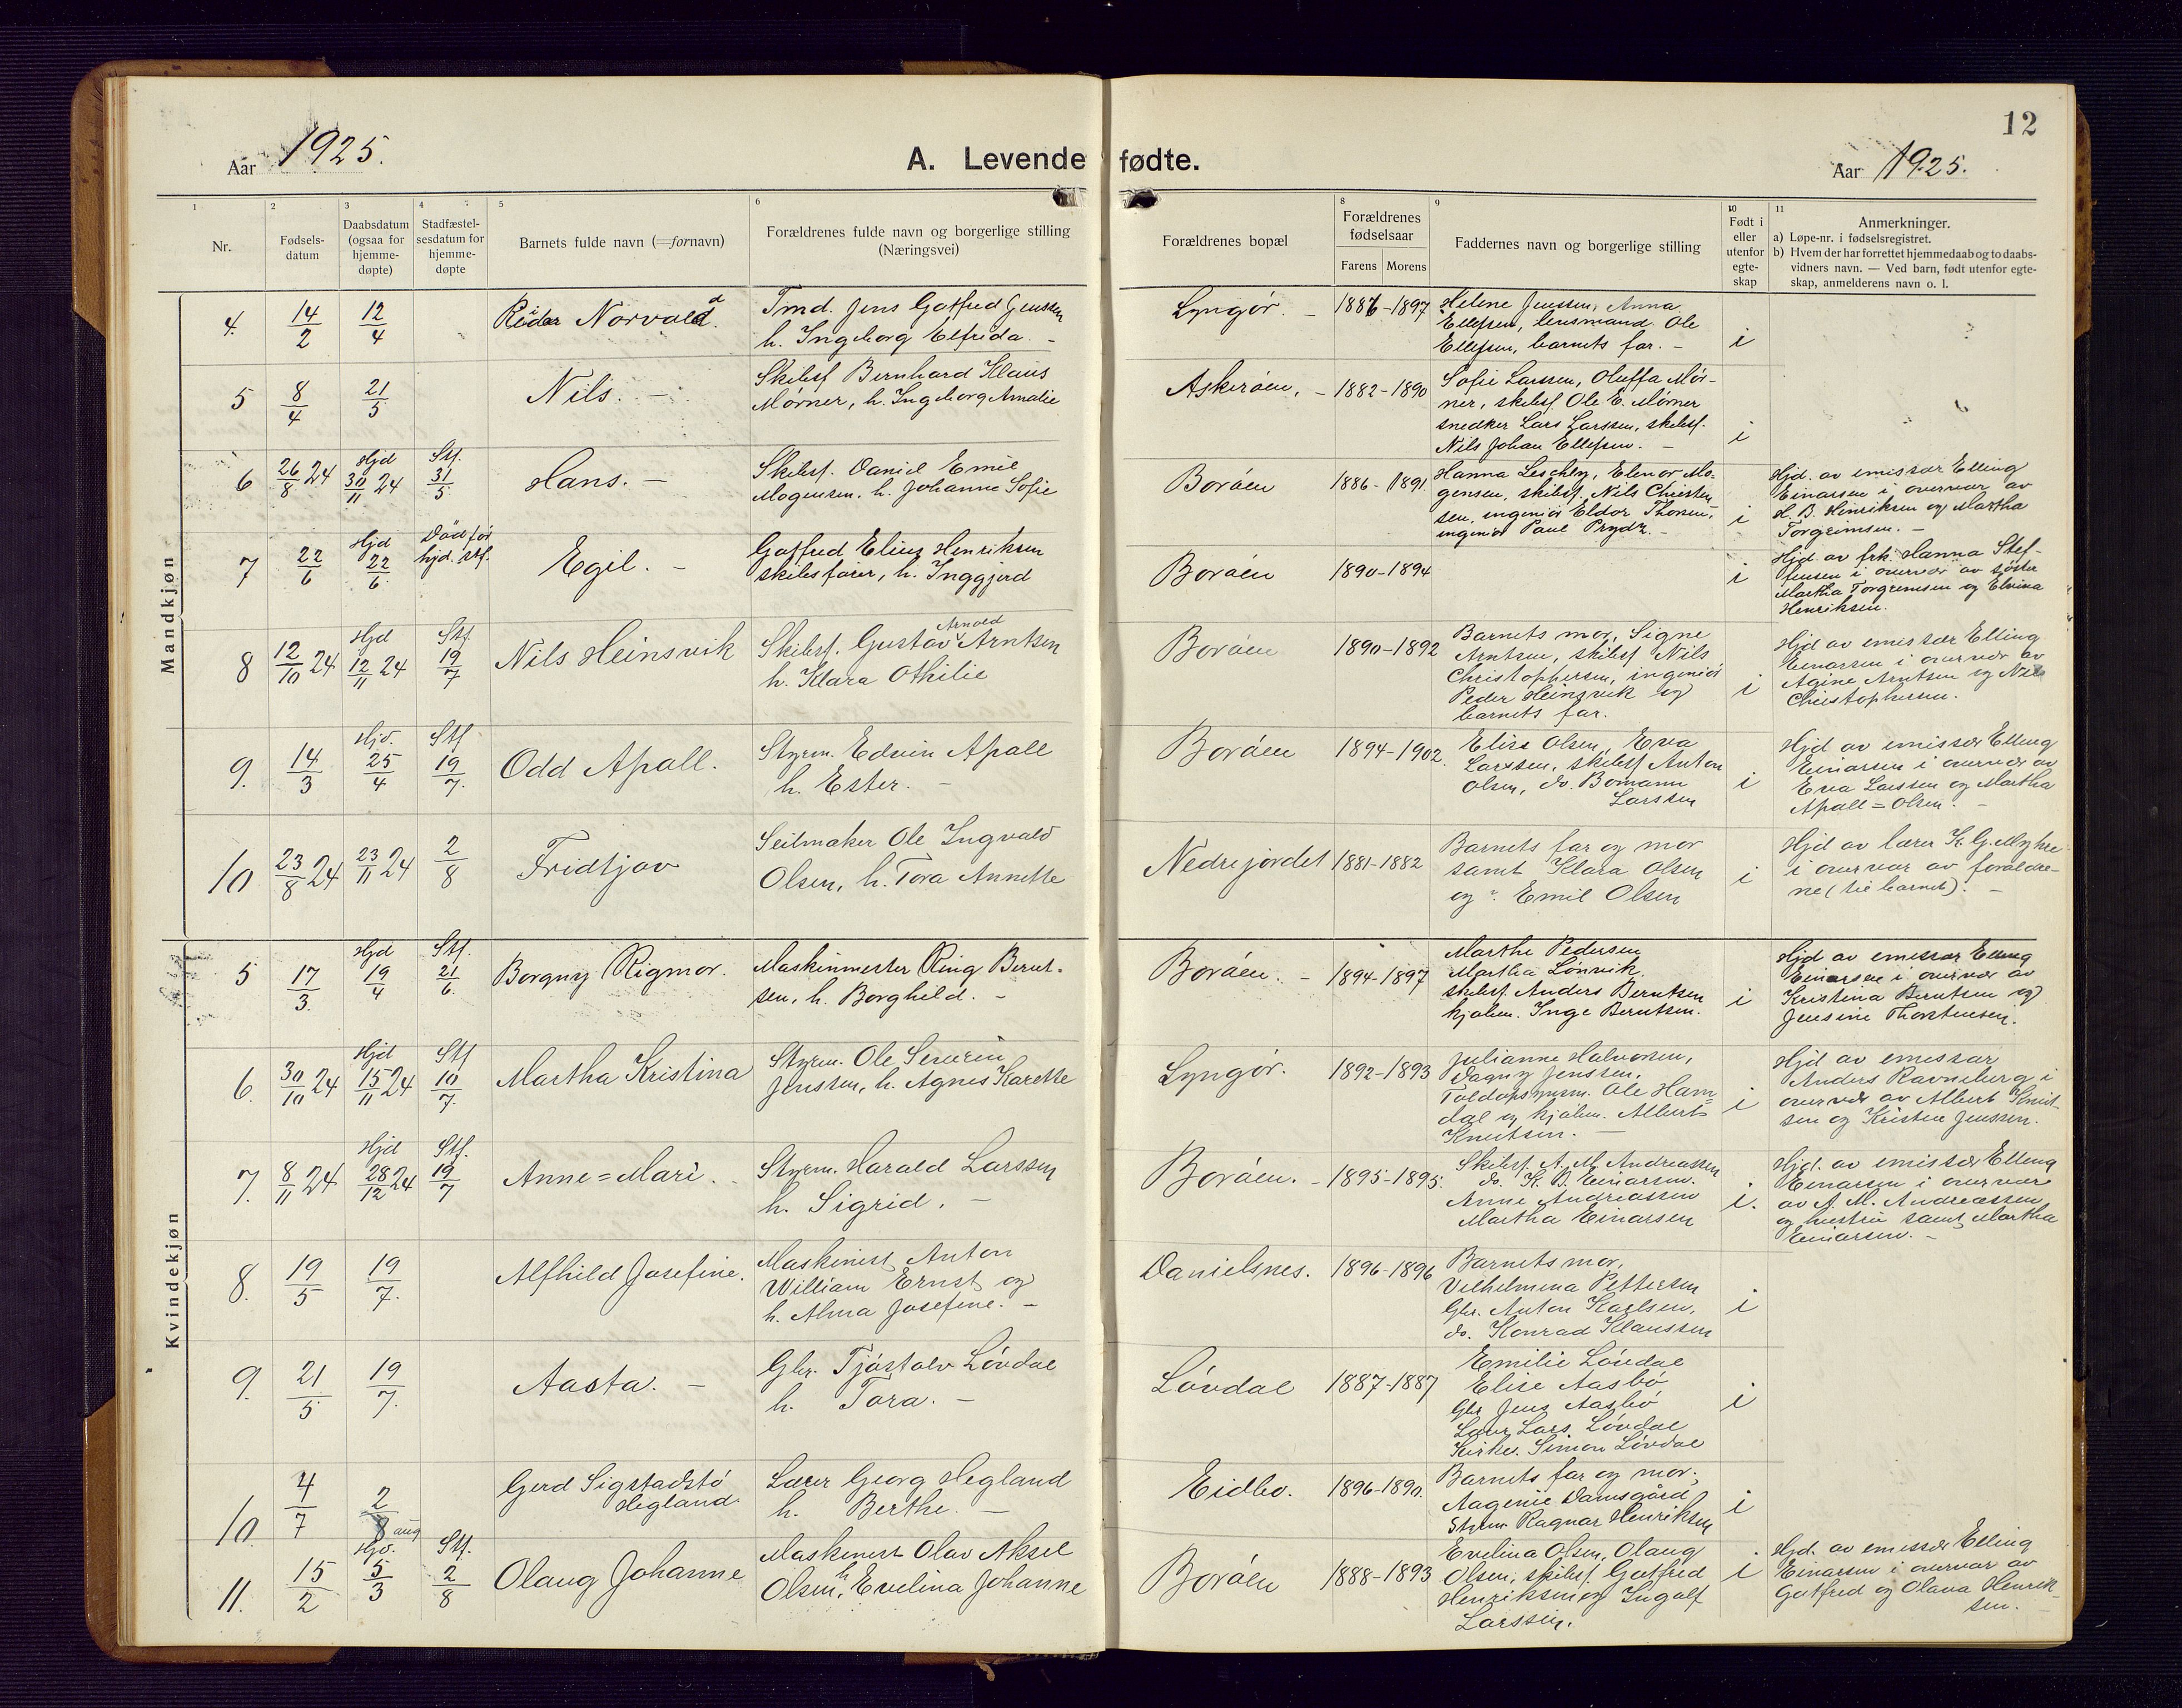 12
Aar 1925.
A. Levende fødte.
Aar 1925.
1
2
3
4
5
6
8
9
10
11
Nr.
Fødsels-
datum
Daabsdatum
(ogsaa for
hjemme-
døpte)
Stadfæstel-
sesdatum for
hjemme-
døpte
Barnets fulde navn (=fornavn)
Forældrenes fulde navn og borgerlige stilling
(Næringsvei)
Forældrenes bopæl
Forældrenes
fødselsaar
Farens Morens
Faddernes navn og borgerlige stilling
Født i
eller
utenfor
egte-
skap
Anmerkninger.
a) Løpe-nr. i fødselsregistret.
b) Hvem der har forrettet hjemmedaab og to daabs-
vidners navn. — Ved barn, født utenfor egte-
skap, anmelderens navn o. l.
Mandkjøn
4. 14/2 12/4
Norvald.
Tmd. Jens Gotfred Jenssen
h. Ingeborg Elfrida. -
Lyngør. - 1886-1897
Helene Jenssen, Anna
Ellefsen, lensmand Ole
Ellefsen, barnets far. -
i
5 8/4 21/5
Nils. -
Skibsf Bernhard Klaus
Mørner, h. Ingeborg Amalie
Askerøen. - 1882-1890
Sofie Larssen, Oluffa Mør-
ner, skibsf. Ole E. Mørner
snedker Lars Larssen, skibsf.
Nils Johan Ellefsen. -
i
6 26/8 24 Hjd 30/11 24 Stf. 31/5
Hans. -
Skibsf. Daniel Emil
Mogensen. h. Johanne Sofie
Borøen 1886-1891.
Hanna Leschly, Elenor Mo-
gensen, skibsf. Nils Christen
sen, ingeniør Eldor Thorsen,
ingeniør Paul Prydz. -
i
Hjd. av emissær Elling
Einarsen i overvær av
H. B. Henriksen og Martha
Torgrimsen. -
7 22/6 Hjd 22/6. Død før
hjd. stf.
Egil. -
Gotfred Elius Henriksen
skibsfører, h. Inggjerd
Borøen 1890-1894
i
Hjd av frk. Hanna Stef-
fensen i overvær av søster
Martha Torgrimsen og Elvina
Henriksen.
8 12/10 24 Hjd 12/11 24 Stf. 19/7
Nils Heinsvik
Arnold
Skibsf. Gustav Arntsen
h. Klara Othilie
Borøen 1890-1892
Barnets mor, Signe
Arntsen, skibsf Nils
Christophersen, ingeniør
Peder Heinsvik og
barnets far.
i
Hjd av emissær Elling
Einarsen i overvær av
Agine Arntsen og Nils
Christophersen.
9. 14/3 Hjd. 25/4 Stf 19/7.
Odd Apall.
Styrm. Edvin Apall
h. Ester. -
Borøen 1894-1902.
Elise Olsen, Eva
Larssen, skibsf Anton
Olsen, do. Bomann
Larssen
i
Hjd av emissær Elling
Einarsen i overvær av
Eva Larssen og Martha
Apall=Olsen. -
10 23/8 24 23/11 24 2/8
Fridtjov
Seilmaker Ole Ingvald
Olsen, h. Tora Annette
Nedrejordet 1881-1882
Barnets far og mor
samt Klara Olsen
og Emil Olsen
i
Hjd av lærer K. G. Myhre
i overvær av forældre-
ne (til barnet). -
Kvindekjøn
5 17/3. Hjd 19/4 Stf. 21/6.
Borgny Rigmor.
Maskinmester Ring Bernt-
sen, h. Borghild. -
Borøen. - 1894-1897
Marthe Pedersen
Martha Lønvik.
skibsf. Anders Berntsen
kjøbm. Inge Berntsen.
i
Hjd av emissær Elling
Einarsen i overvær av
Kristina Berntsen og
Jensine Thorstensen.
6. 30/10 24 Hjd 15/11 24 Stf 10/7.
Martha Kristina
Styrm. Ole Severin
Jenssen, h. Agnes Karette
Lyngør. 1892-1893
Julianne Halvorsen,
Dagny Jenssen,
Toldopsynsm. Ole Ham-
dal og kjøbm. Albert
Knutsen. -
i
Hjd av emissær
Anders Ravneberg i
overvær av Albert Knut-
sen og Kristen Jenssen.
7. 8/11 24 Hjd 28/12 24 Stf. 19/7
Anne=Mari. -
Styrm. Harald Larssen
h. Sigrid. -
Borøen. - 1895-1895.
Skibsf. A. M. Andreassen
do. K. B. Einarsen.
Anne Andreassen
Martha Einarsen
i.
Hjd. av emissær Elling
Einarsen i overvær
av A. M. Andreassen
og hustru samt Martha
Einarsen. -
8. 19/5 19/7.
Alfhild Josefine.
Maskinist Anton
William Ernst og
h. Alma Josefine. -
Danielsnes. 1896-1896
Barnets mor,
Vilhelmina Pettersen
Gbr. Anton Karlsen,
do. Konrad Klaussen
i
9. 21/5 19/7.
Aasta. -
Gbr. Tjøstolv Løvdal
h. Tora. -
Løvdal 1887-1887
Emilie Løvdal
Elise Aasbø
Gbr Jens Aasbø
Lars Løvdal
Simon Løvdal
i
10. 4/7 2/8 aug
Gerd Sigstadstø
Hegland
Lærer Georg Hegland
h. Berthe. -
Eidbo. 1896-1890.
Barnets far og mor,
Aagenie Damsgård
Styrm Ragnar Henriksen
i
11. 15/2 Hjd. 5/3 Stf. 2/8
Olaug Johanne
Maskinist Olav Aksel
Olsen, h Evelina Johanne
Borøen 1888-1893
Evelina Olsen, Olaug
Olsen, skibsf. Gotfred
Henriksen og Ingolf
Larssen.
i
Hjd. av emissær Elling
Einarsen i overvær av
Gotfred og Olava Henrik-
sen. -